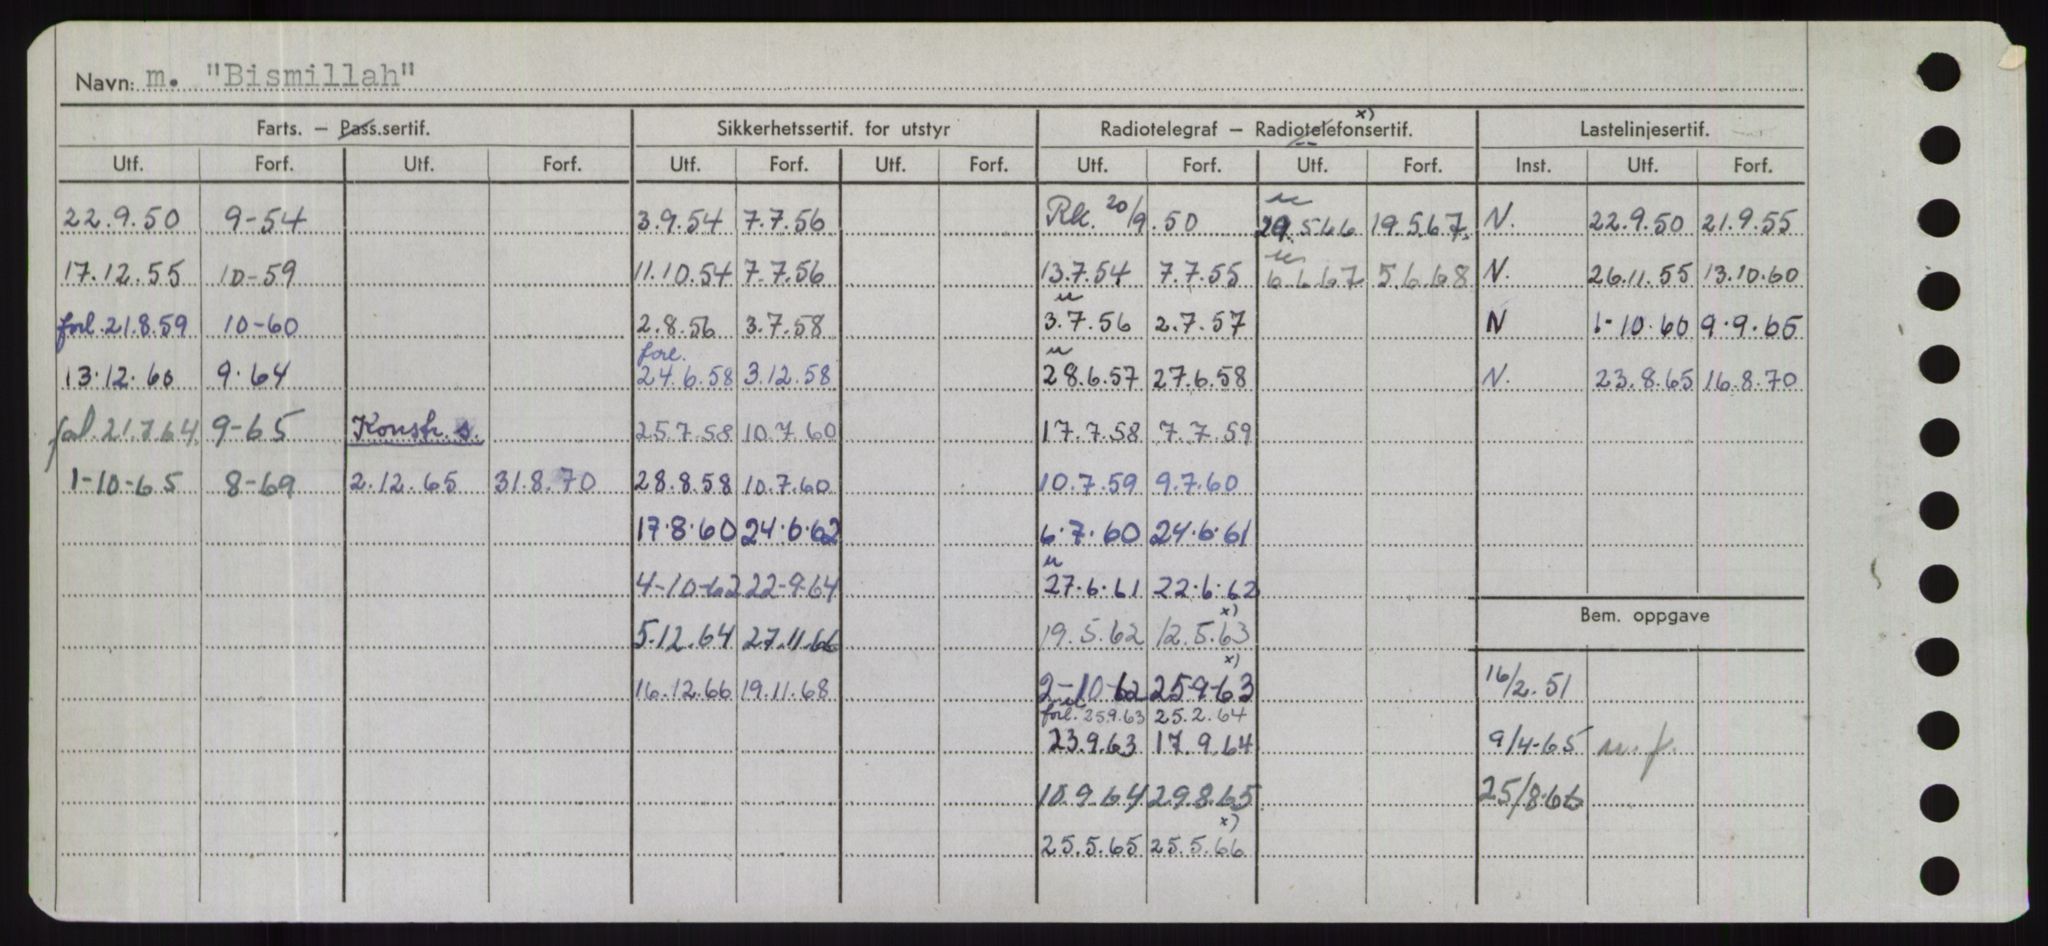 Navn: m. "Bismillah"
Farts. – Pass.sertif. Sikkerhetssertif. for utstyr Radiotelegraf – Radiotelefonsertif. x) Lastelinjesertif.
Utf. Forf. Utf. Forf. Utf. Forf. Utf. Forf. Utf. Forf. Utf. Forf. Inst. Utf. Forf.
22.9.50 9-54 3.9.54 7.7.56 Rk. 20/9.50 29.5.66 19.5.67. N. 22.9.50 21.9.55
17.12.55 10-59 11.10.54 7.7.56 13.7.54 7.7.55 6.6.67 5.6.68 N. 26.11.55 13.10.60
forl. 21.8.59 10-60 2.8.56 3.7.58 3.7.56 2.7.57 N 1-10.60 9.9.65
forl.
13.12.60 9.64 24.6.58 3.12.58 28.6.57 27.6.58 N. 23.8.65 16.8.70
forl. 21.7.64 9-65 Konstr. s. 25.7.58 10.7.60 17.7.58 7.7.59
1-10-65 8-69 2.12.65 31.8.70 28.8.58 10.7.60 10.7.59 9.7.60
17.8.60 24.6.62 6.7.60 24.6.61
4-10-62 22-9.64 27.6.61 22.6.62
Bem. oppgave
5.12.64 27.11.66 19.5.62 12.5.63 x)
16.12.66 19.11.68 2-10-62 25-9-63 x) 16/2.51
forl. 25.9.63 25.2.64
23.9.63 17.9.64 9/4-65 u. f.
10.9.64 29.8.65 25/8.66
25.5.65 25.5.66 x)